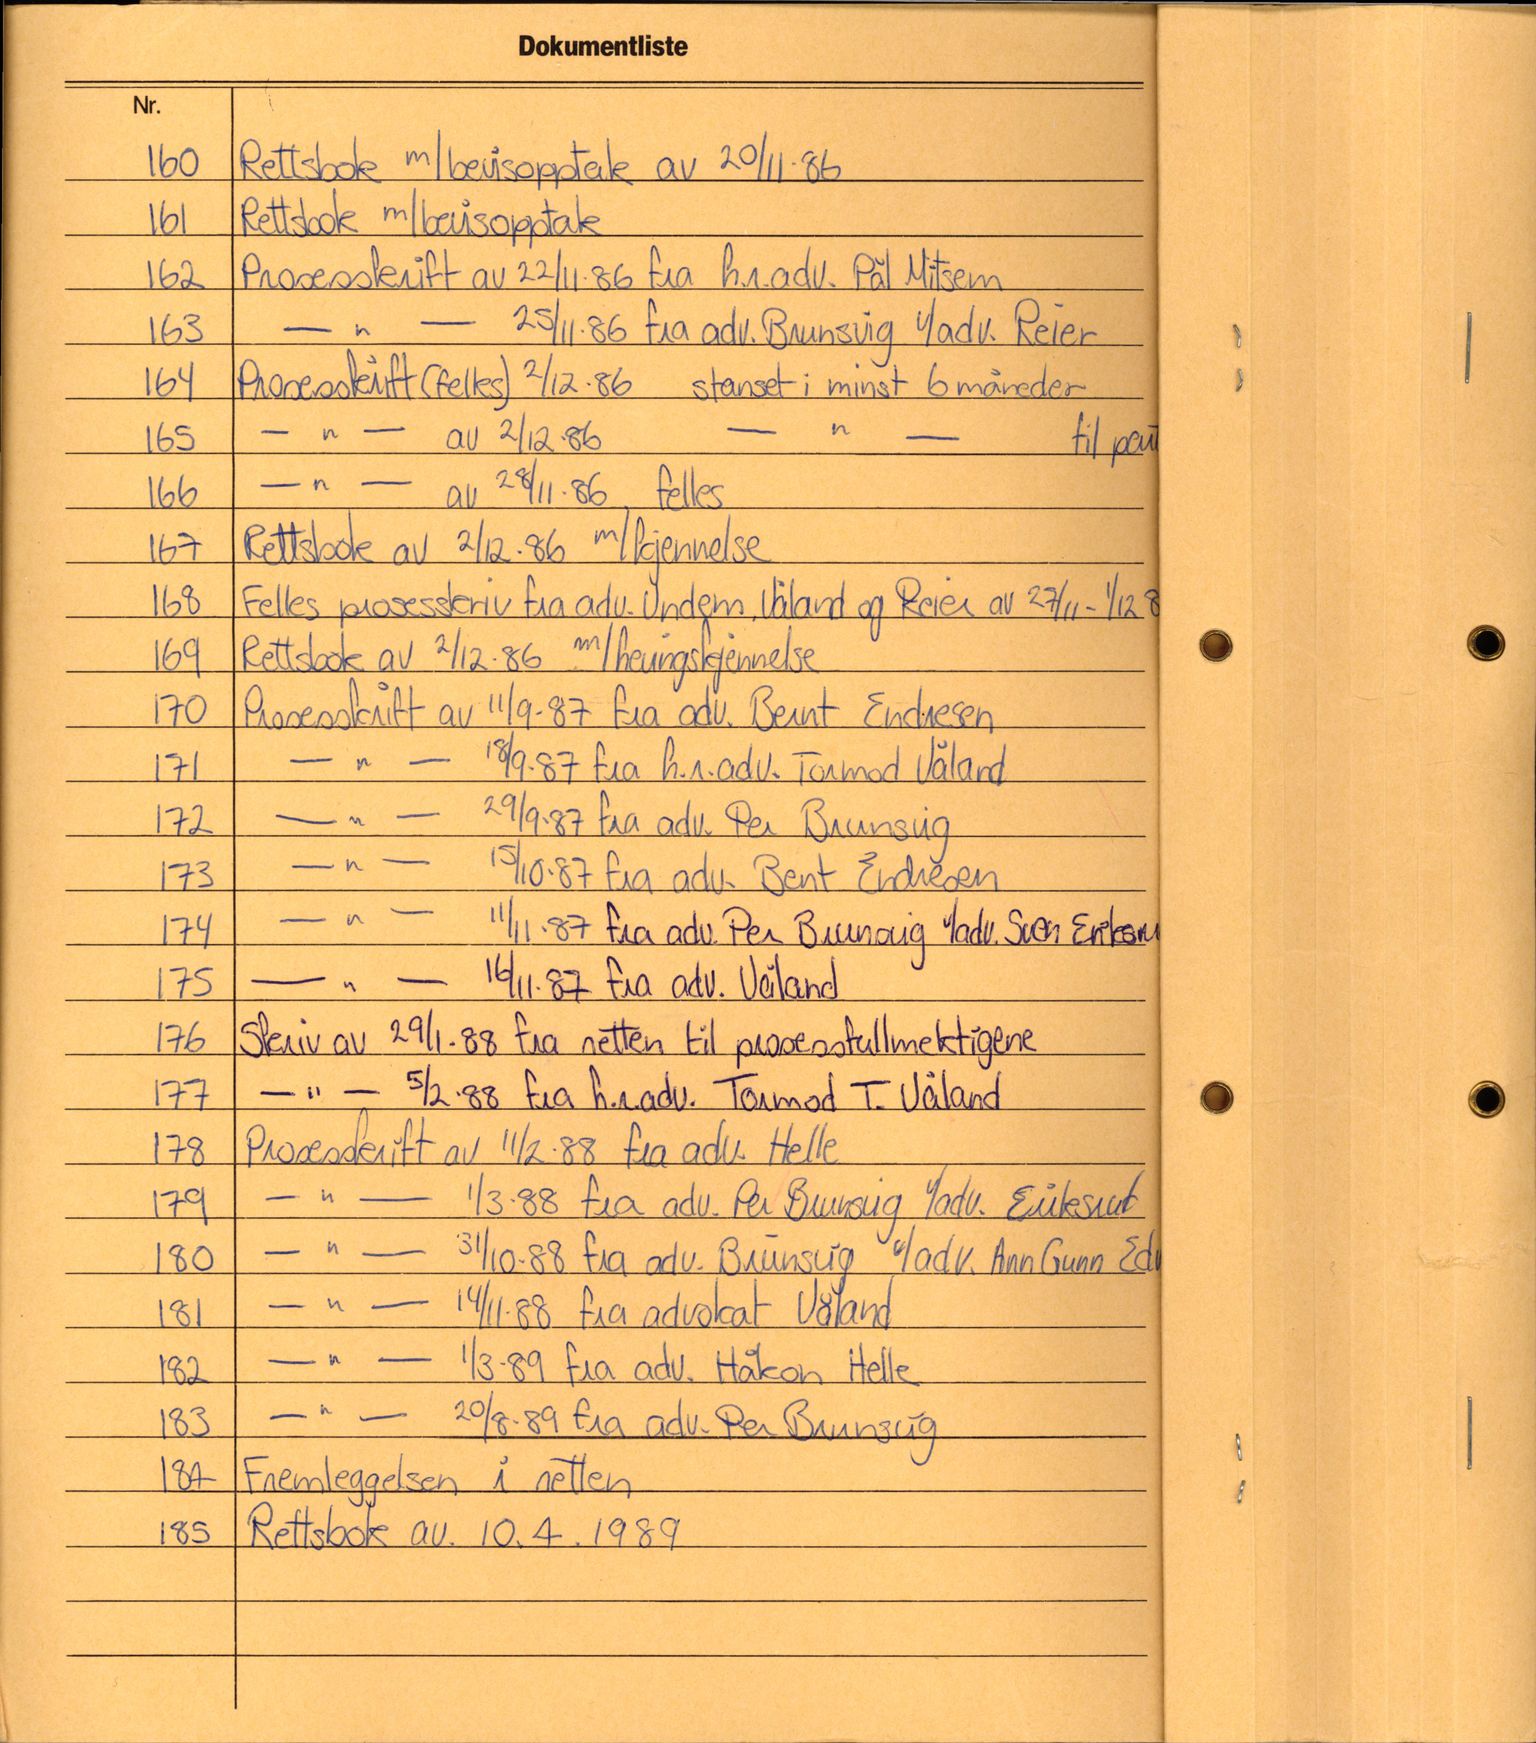 Dokumentliste
Nr.
160 Rettsbok m/bevisopptak av 20/11-86
161 Rettsbok m/bevisopptak
162 Prosesskrift av 22/11-86 fra h.r.adv. Pål Mitsem
163 — " — 25/11-86 fra adv. Brunsvig v/adv. Reier
164 Prosesskrift (felles) 2/12-86 stanset i minst 6 måneder
165 — " — av 2/12-86 — " — til
166 — " — av 28/11-86, felles
167 Rettsbok av 2/12-86 m/kjennelse
168 Felles prosesskriv fra adv. Undem, Våland og Reier av 27/11 - 1/12 8
169 Rettsbok av 2/12-86 m/hevingskjennelse
170 Prosesskrift av 11/9-87 fra adv. Bernt Endresen
171 — " — 18/9-87 fra h.r.adv. Tormod Våland
172 — " — 29/9-87 fra adv. Per Brunsvig
173 — " — 15/10-87 fra adv. Bent Endresen
174 — " — 11/11-87 fra adv. Per Brunsvig v/adv. Sven
175 — " — 16/11-87 fra adv. Våland
176 Skriv av 29/1-88 fra retten til prosessfullmektigene
177 — " — 5/2-88 fra h.r.adv. Tormod T. Våland
178 Prosesskrift av 11/2-88 fra adv. Helle
179 — " — 1/3-88 fra adv. Per Brunsvig v/adv. Eriksrut
180 — " — 31/10-88 fra adv. Brunsvig v/adv. Ann Gunn
181 — " — 14/11-88 fra advokat Våland
182 — " — 1/3-89 fra adv. Håkon Helle
183 — " — 20/8-89 fra adv. Per Brunsvig
184 Fremleggelsen i retten
185 Rettsbok av. 10.4.1989